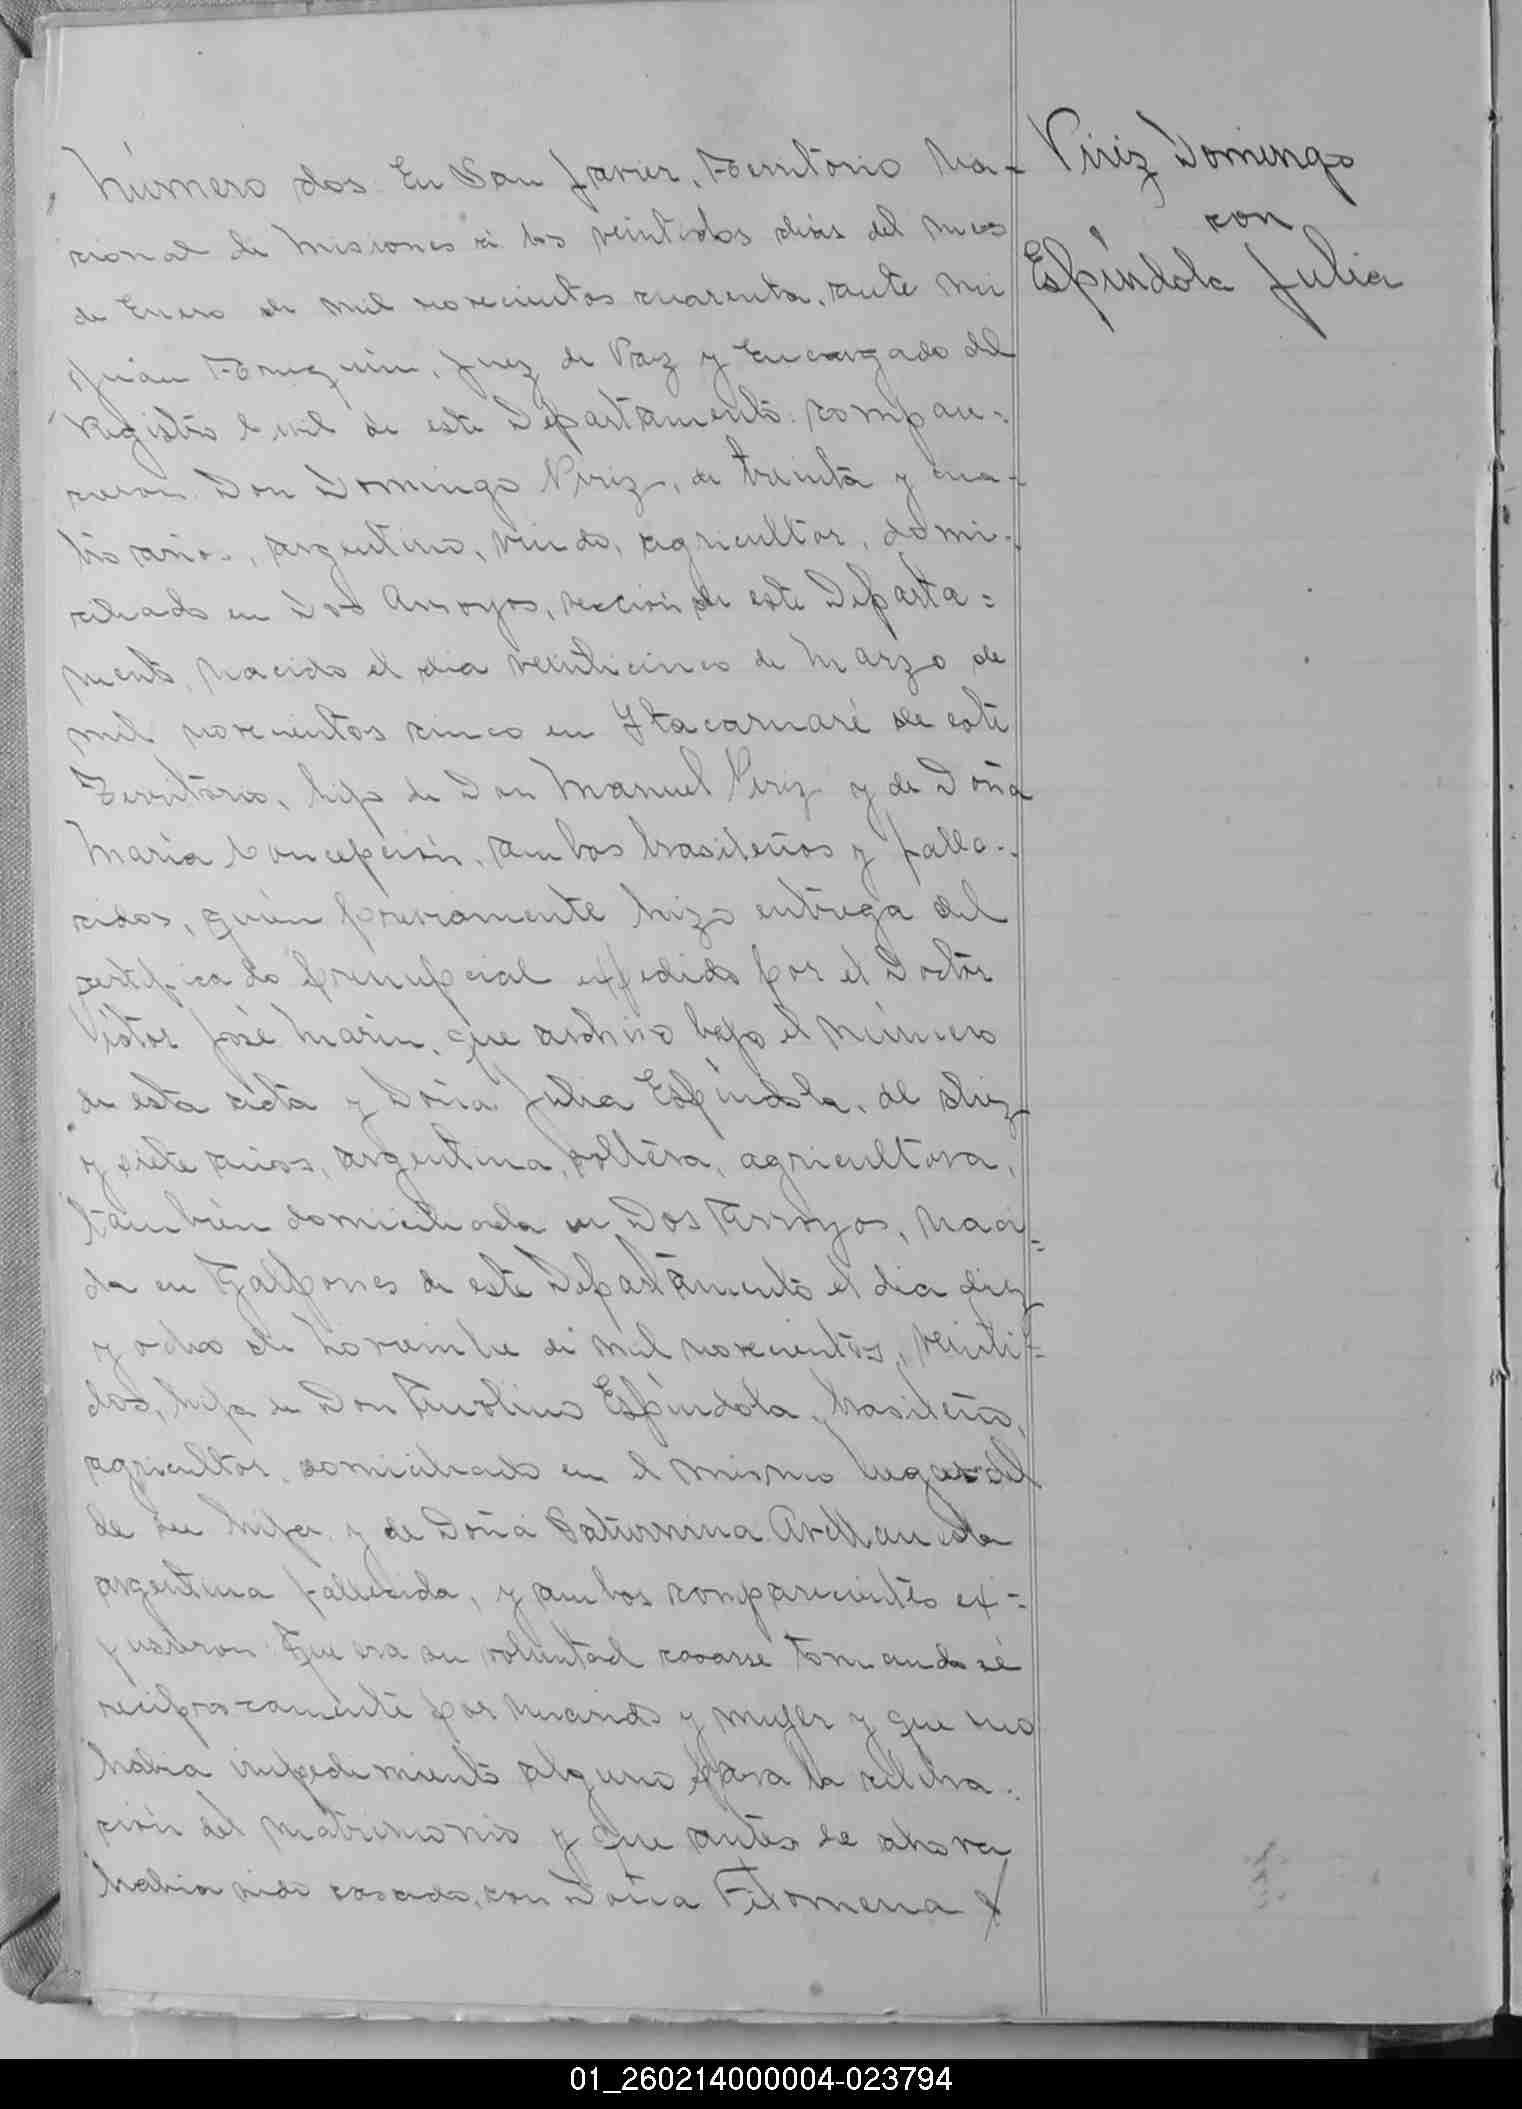 Número dos. En San Javier, Territorio Na-
cional de Misiones á los veintidos dias del mes
de Enero de mil novecientos cuarenta, ante mi
Juan Truquin, Juez de Paz y Encargado del
Registro Civil de este Departamento: compare-
cieron Don Domingo Piriz, de treinta y cua-
tro años, argentino, viudo, agricultor, domi-
ciliado en Dos Arroyos, sección de este Departa=
mento, nacido el dia veinticinco de Marzo de
mil novecientos cinco en Itacaruaré de este
Territorio, hijo de Don Manuel Piriz y de Doña
María Concepción, ambos brasileños y falle-
cidos, quién previamente hizo entrega del
certificado prenupcial expedido por el Doctor
Victor José Marin, que archivo bajo el número
de esta acta y Doña Julia Espíndola, de diez
y siete años, argentina, soltera, agricultora,
también domiciliada en Dos Arroyos, naci=
da en Galpones de este Departamento el dia diez
y ocho de Noviembre de mil novecientos, veinti=
dos, hija de Don Espíndola, brasileño,
agricultor, domiciliado en el mismo lugar del
de su hija y de Doña Saturnina Avellaneda
argentina fallecida, y ambos comparecientes ex=
pusieron: Que era su voluntad casarse tomandosé
reciprocamente por marido y mujer y que no
habia impedimento alguno para la celebra-
ción del matrimonio y que antes de ahora
habia sido casado, con Doña Filomena
Piriz Domingo
con
Espíndola Julia
01_260214000004-023794